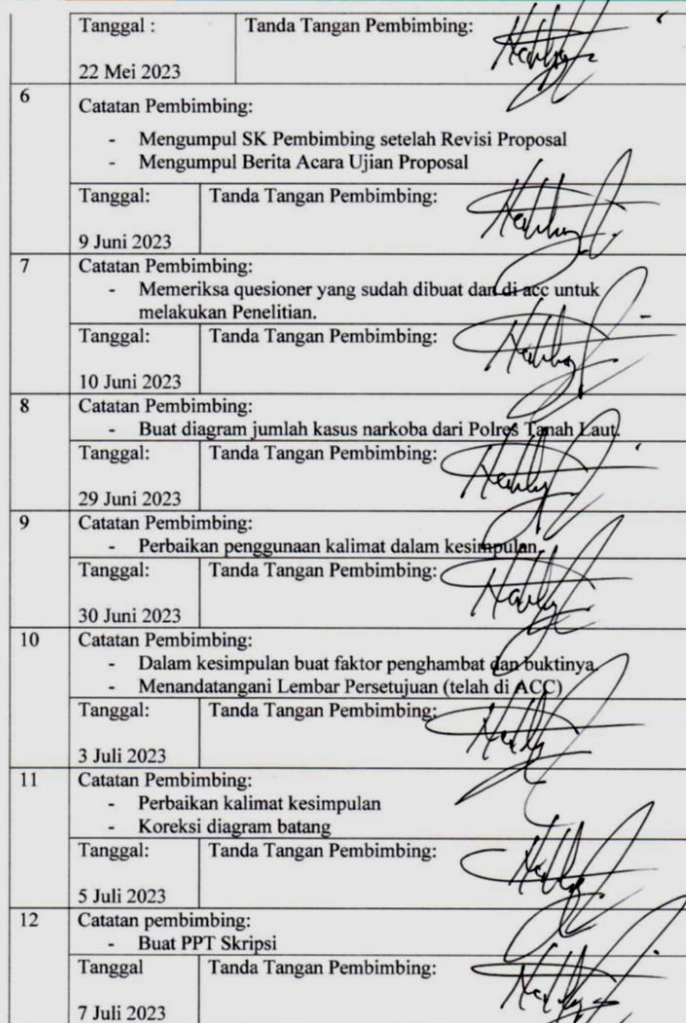 Tanggal :
Tanda Tangan Pembimbing:
22 Mei 2023
6
Catatan Pembimbing:
- Mengumpul SK Pembimbing setelah Revisi Proposal
- Mengumpul Berita Acara Ujian Proposal
Tanggal:
Tanda Tangan Pembimbing:
9 Juni 2023
7
Catatan Pembimbing:
- Memeriksa quesioner yang sudah dibuat dan di acc untuk
melakukan Penelitian.
Tanggal:
Tanda Tangan Pembimbing:
10 Juni 2023
8
Catatan Pembimbing:
- Buat diagram jumlah kasus narkoba dari Polres Tanah Laut.
Tanggal:
Tanda Tangan Pembimbing:
29 Juni 2023
9
Catatan Pembimbing:
- Perbaikan penggunaan kalimat dalam kesimpulan.
Tanggal:
Tanda Tangan Pembimbing:
30 Juni 2023
10
Catatan Pembimbing:
- Dalam kesimpulan buat faktor penghambat dan buktinya.
- Menandatangani Lembar Persetujuan (telah di ACC)
Tanggal:
Tanda Tangan Pembimbing:
3 Juli 2023
11
Catatan Pembimbing:
- Perbaikan kalimat kesimpulan
- Koreksi diagram batang
Tanggal:
Tanda Tangan Pembimbing:
5 Juli 2023
12
Catatan pembimbing:
- Buat PPT Skripsi
Tanggal
Tanda Tangan Pembimbing:
7 Juli 2023